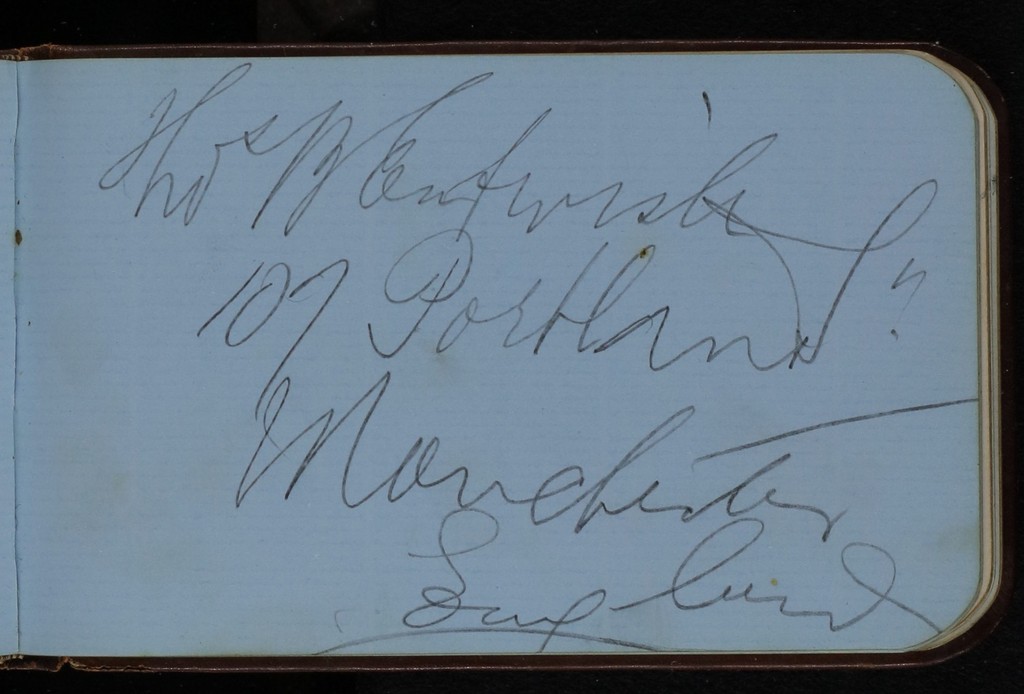 Thos B Entwisle
107 Portland S
Manchester
England